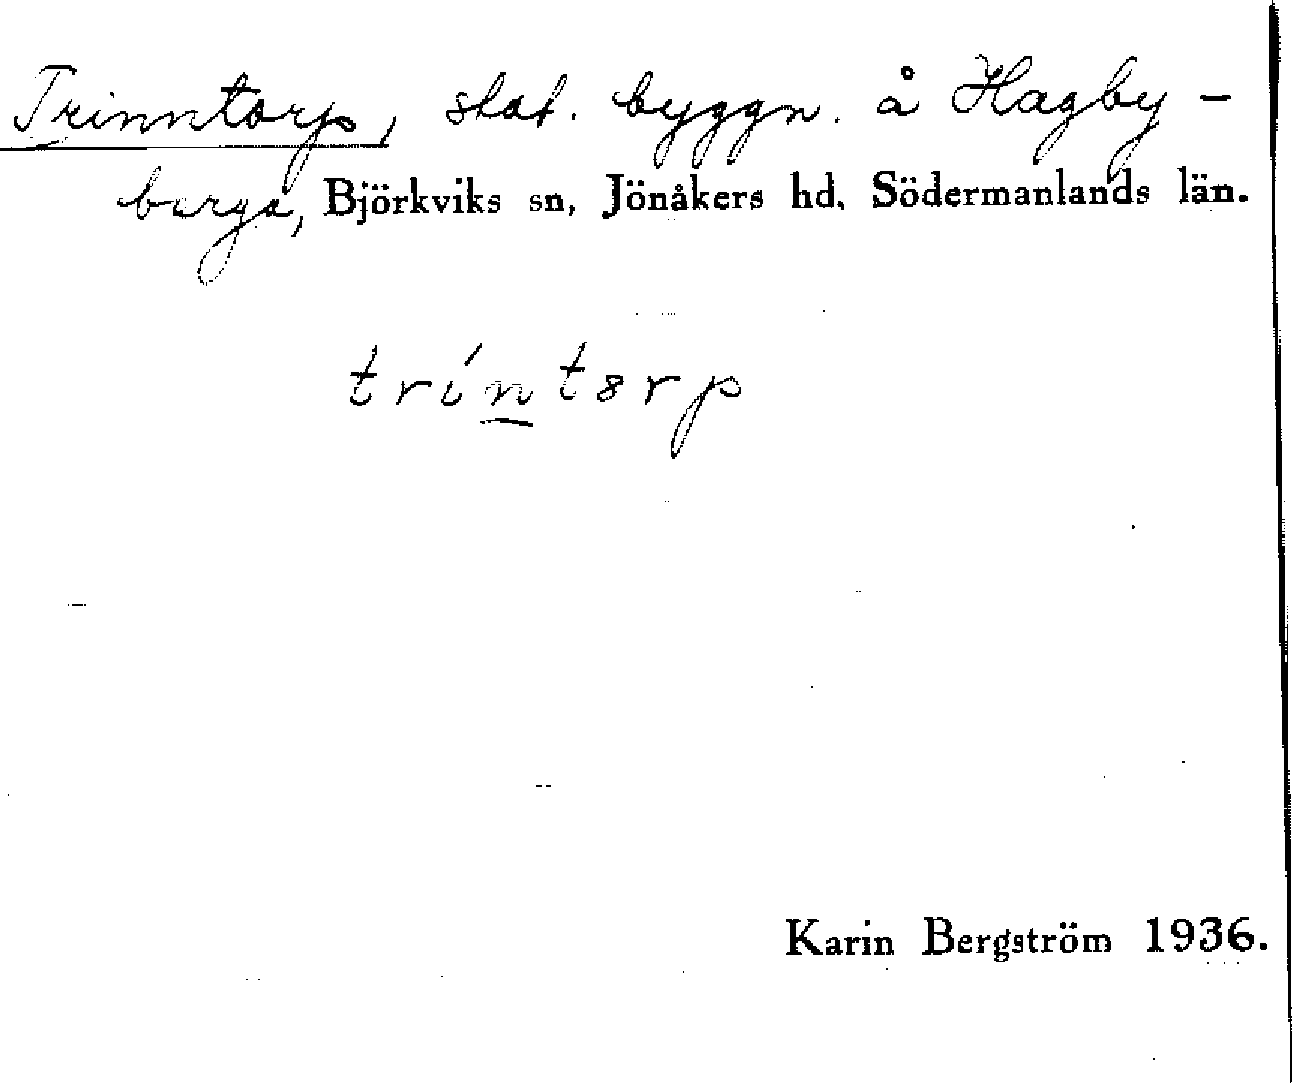 Trinntorp, stat. byggn. å Hagby-
berga, Björkviks sn, Jönåkers hd, Södermanlands län.
tríntȣrp
Karin Bergström 1936.